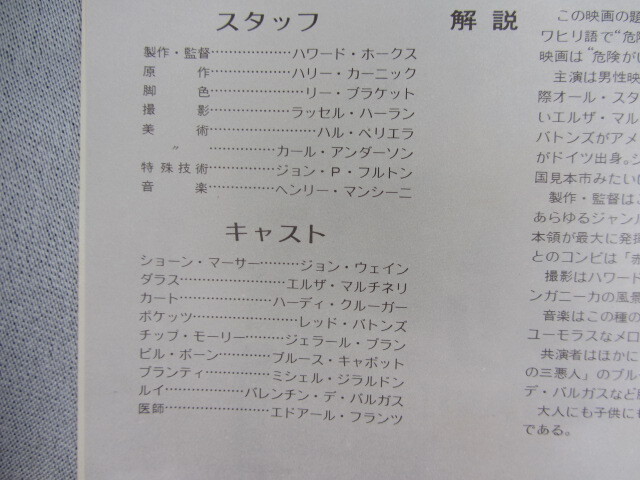 スタッフ
製作・監督…………………ハワード・ホークス
原作…………………ハリー・カーニック
脚色…………………リー・ブラケット
撮影…………………ラッセル・ハーラン
美術…………………ハル・ペリエラ
〃…………………カール・アンダーソン
特殊技術…………………ジョン・P・フルトン
音楽…………………ヘンリー・マンシーニ
キャスト
ショーン・マーサー………ジョン・ウェイン
ダラス…………………エルザ・マルチネリ
カート…………………ハーディ・クルーガー
ポケッツ…………………レッド・バトンズ
チップ・モーリー………ジェラール・ブラン
ビル・ボーン…………ブルース・キャボット
ブランディ…………ミシェル・ジラルドン
ルイ…………………バレンチン・デ・バルガス
医師…………………エドアール・フランツ
解説
この映画の題
ワヒリ語で“危険
映画は“危険がい
主演は男性映
際オール・スタ
いエルザ・マル
バトンズがアメ
がドイツ出身。
国見本市みたい
製作・監督は
あらゆるジャン
本領が最大に発
とのコンビは「
撮影はハワード
ンガニーカの風景
音楽はこの種の
ユーモラスなメロ
共演者はほかに
の三悪人」のブル
デ・バルガスなど
大人にも子供にも
である。